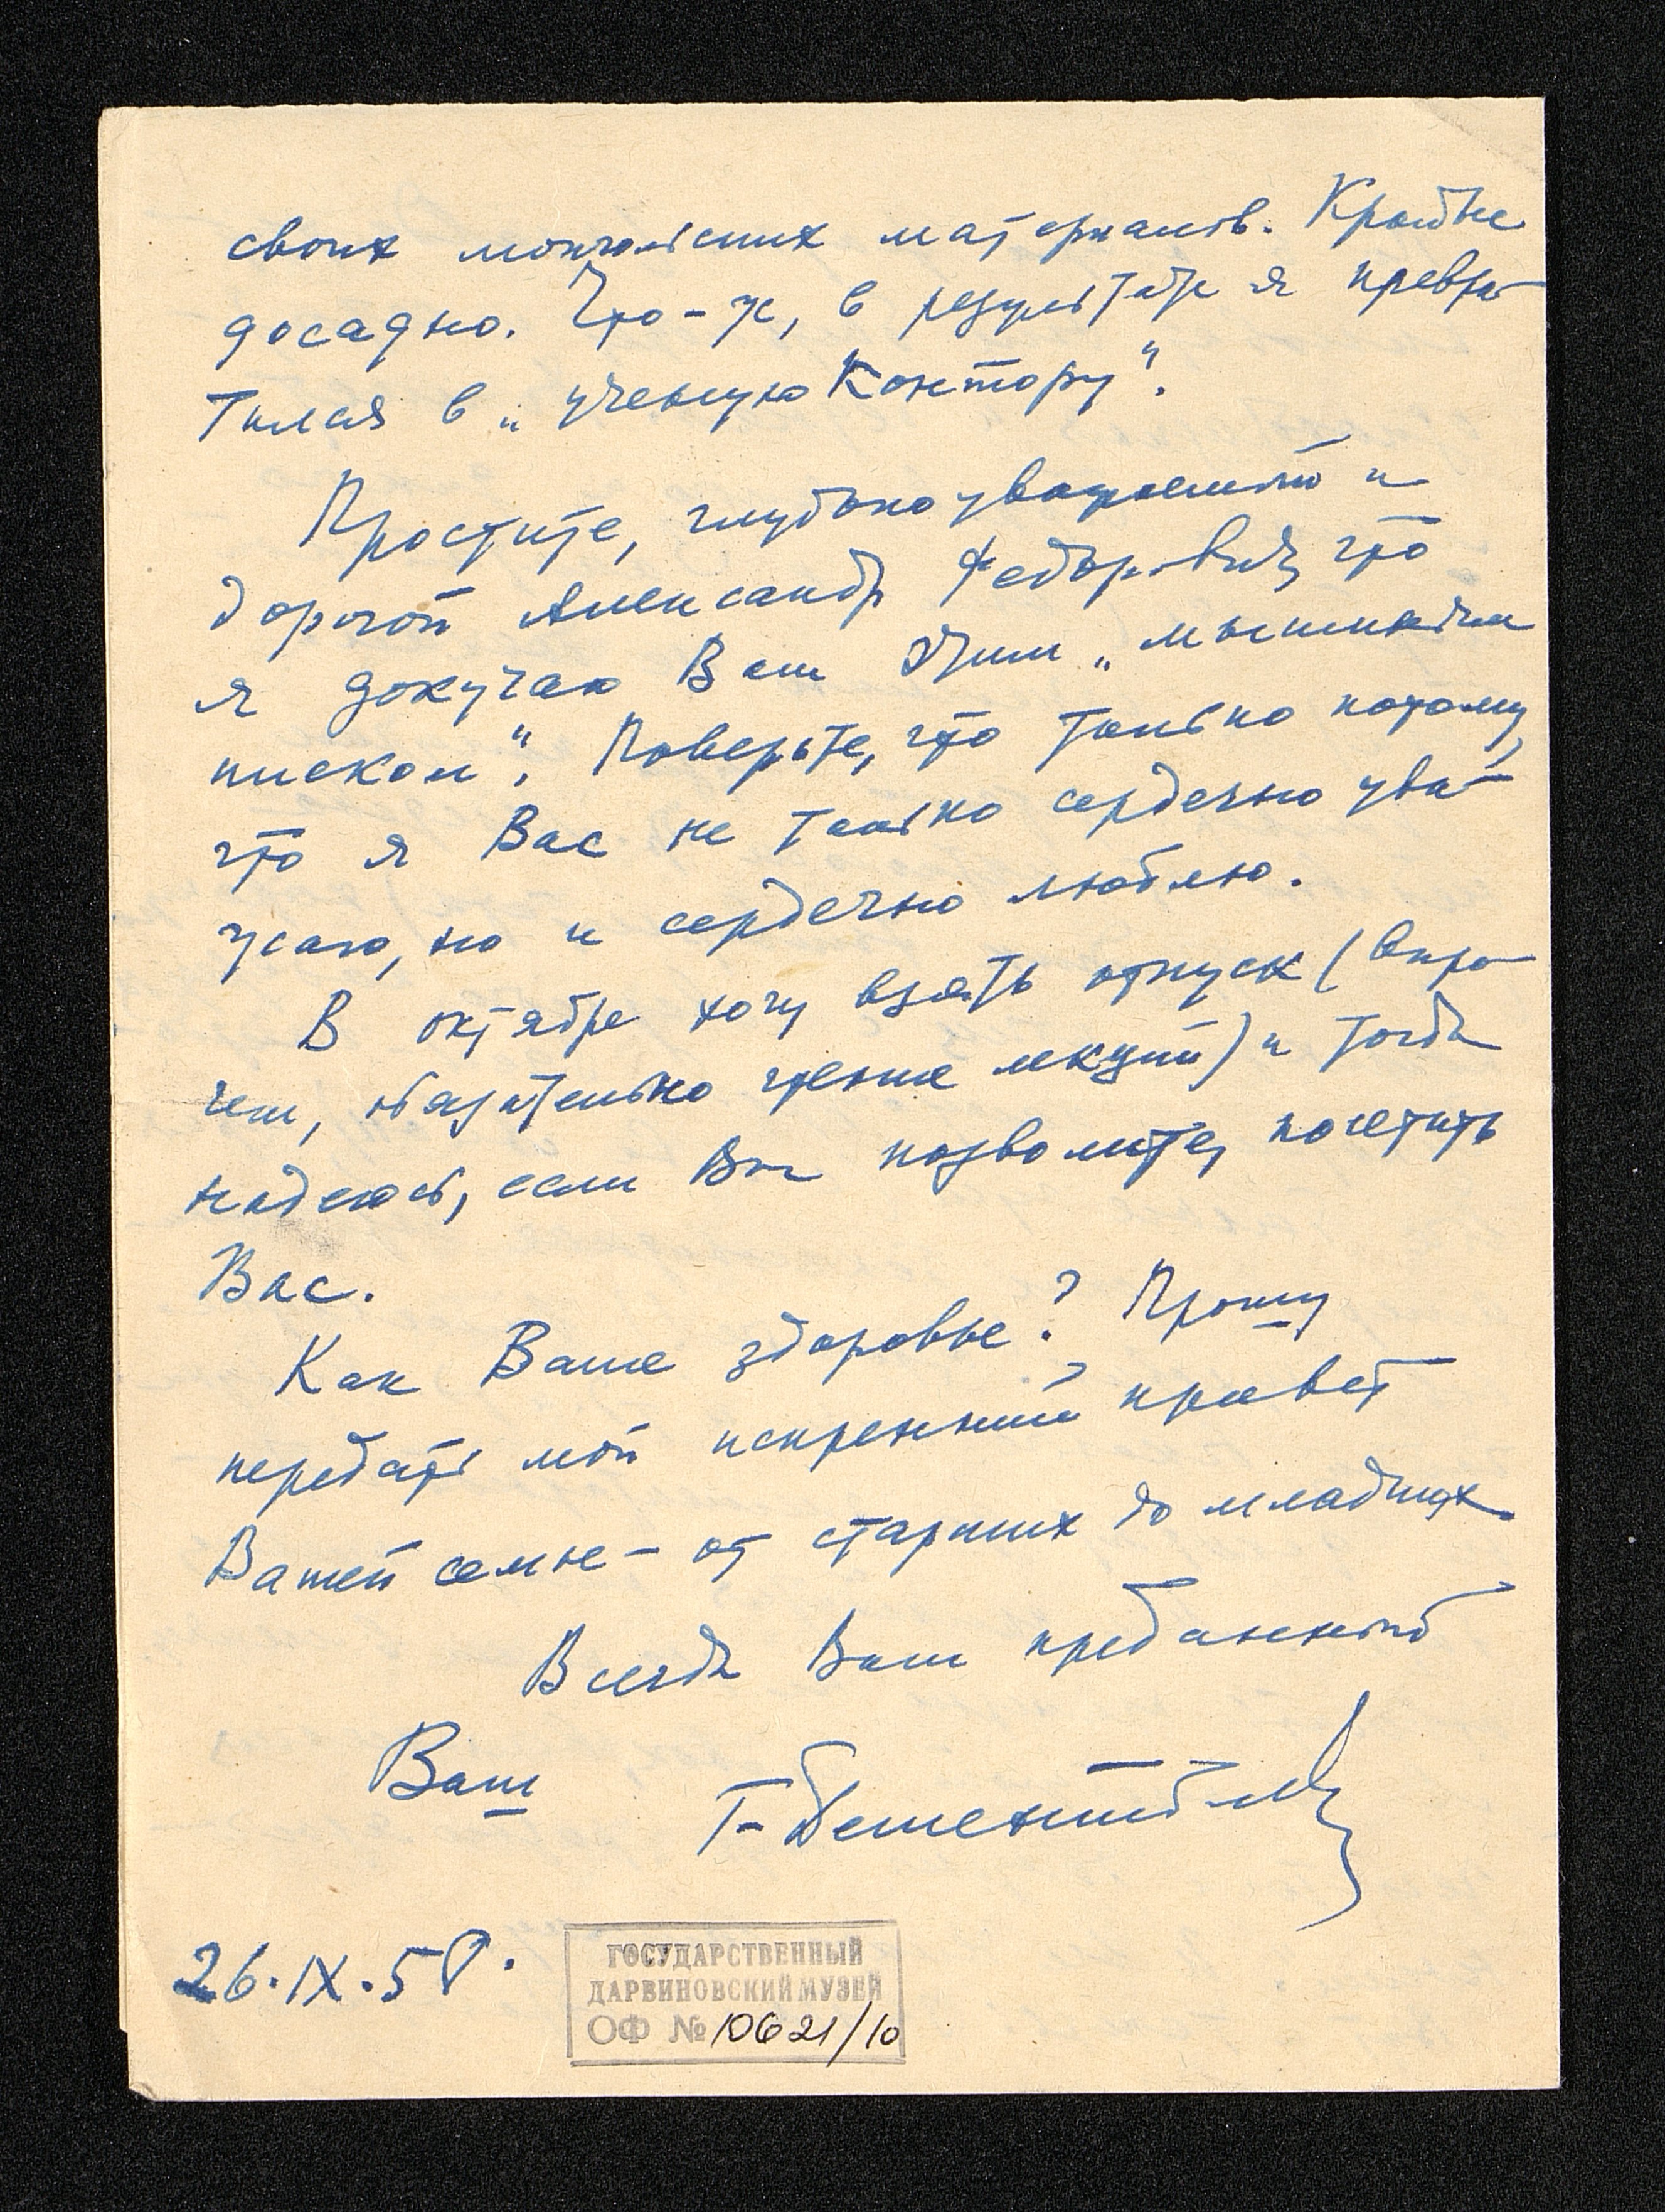 своих монгольских материалов. Крайне
досадно. Что-ж, в результате я превра-
тился в „ученую контору".
Простите, глубокоуважаемый и
дорогой Александр Федорович, что
я докучаю Вам этим „мышиным
писком". Поверьте, что только потому,
что я Вас не только сердечно ува-
жаю, но и сердечно люблю.
В октябре хочу взять отпуск (впро-
чем, обязательно чтение лекций) и тогда
надеюсь, если Вы позволите, посетить
Вас.
Как Ваше здоровье? Прошу
передать мой искренний привет
Вашей семье - от старших до младших.
Всегда Вам преданный
Ваш Г. Дементьев
26.IX.58.
ГОСУДАРСТВЕННЫЙ
ДАРВИНОВСКИЙ МУЗЕЙ
ОФ № 10621/10